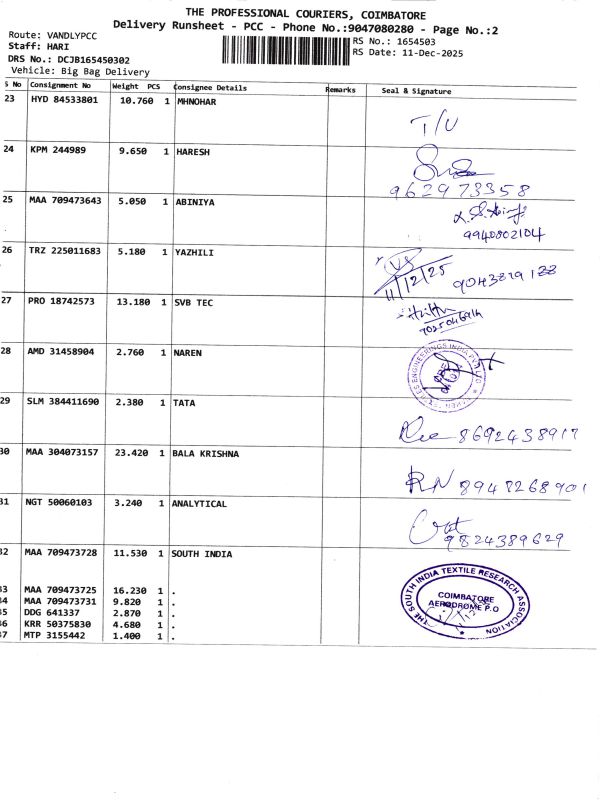 THE PROFESSIONAL COURIERS, COIMBATORE
Delivery Runsheet - PCC - Phone No.:9047080280 - Page No.:2
Route: VANDLYPCC
Staff: HARI
DRS No.: DCJB165450302
Vehicle: Big Bag Delivery
RS No.: 1654503
RS Date: 11-Dec-2025
S No Consignment No Weight PCS Consignee Details Remarks Seal & Signature
23 HYD 84533801 10.760 1 MHNOHAR T/U
24 KPM 244989 9.650 1 HARESH
962973358
25 MAA 709473643 5.050 1 ABINIYA
9940802104
26 TRZ 225011683 5.180 1 YAZHILI
11/12/25
27 PRO 18742573 13.180 1 SVB TEC
28 AMD 31458904 2.760 1 NAREN
29 SLM 384411690 2.380 1 TATA
8692438917
30 MAA 304073157 23.420 1 BALA KRISHNA
RN 8947268901
31 NGT 50060103 3.240 1 ANALYTICAL
9824389629
32 MAA 709473728 11.530 1 SOUTH INDIA
THE SOUTH INDIA TEXTILE RESEARCH ASSOCIATION
COIMBATORE
AERODROME P.O
33 MAA 709473725 16.230 1 .
34 MAA 709473731 9.820 1 .
35 DDG 641337 2.870 1 .
36 KRR 50375830 4.680 1 .
37 MTP 3155442 1.400 1 .